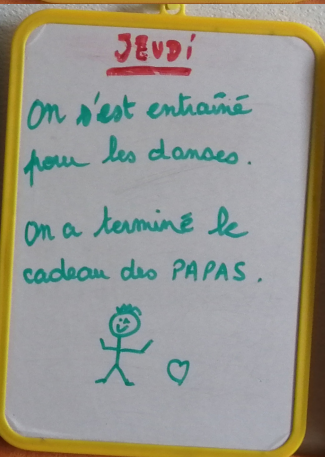 JEUDI
On s'est entraîné
pour les danses.
On a terminé le
cadeau des PAPAS.